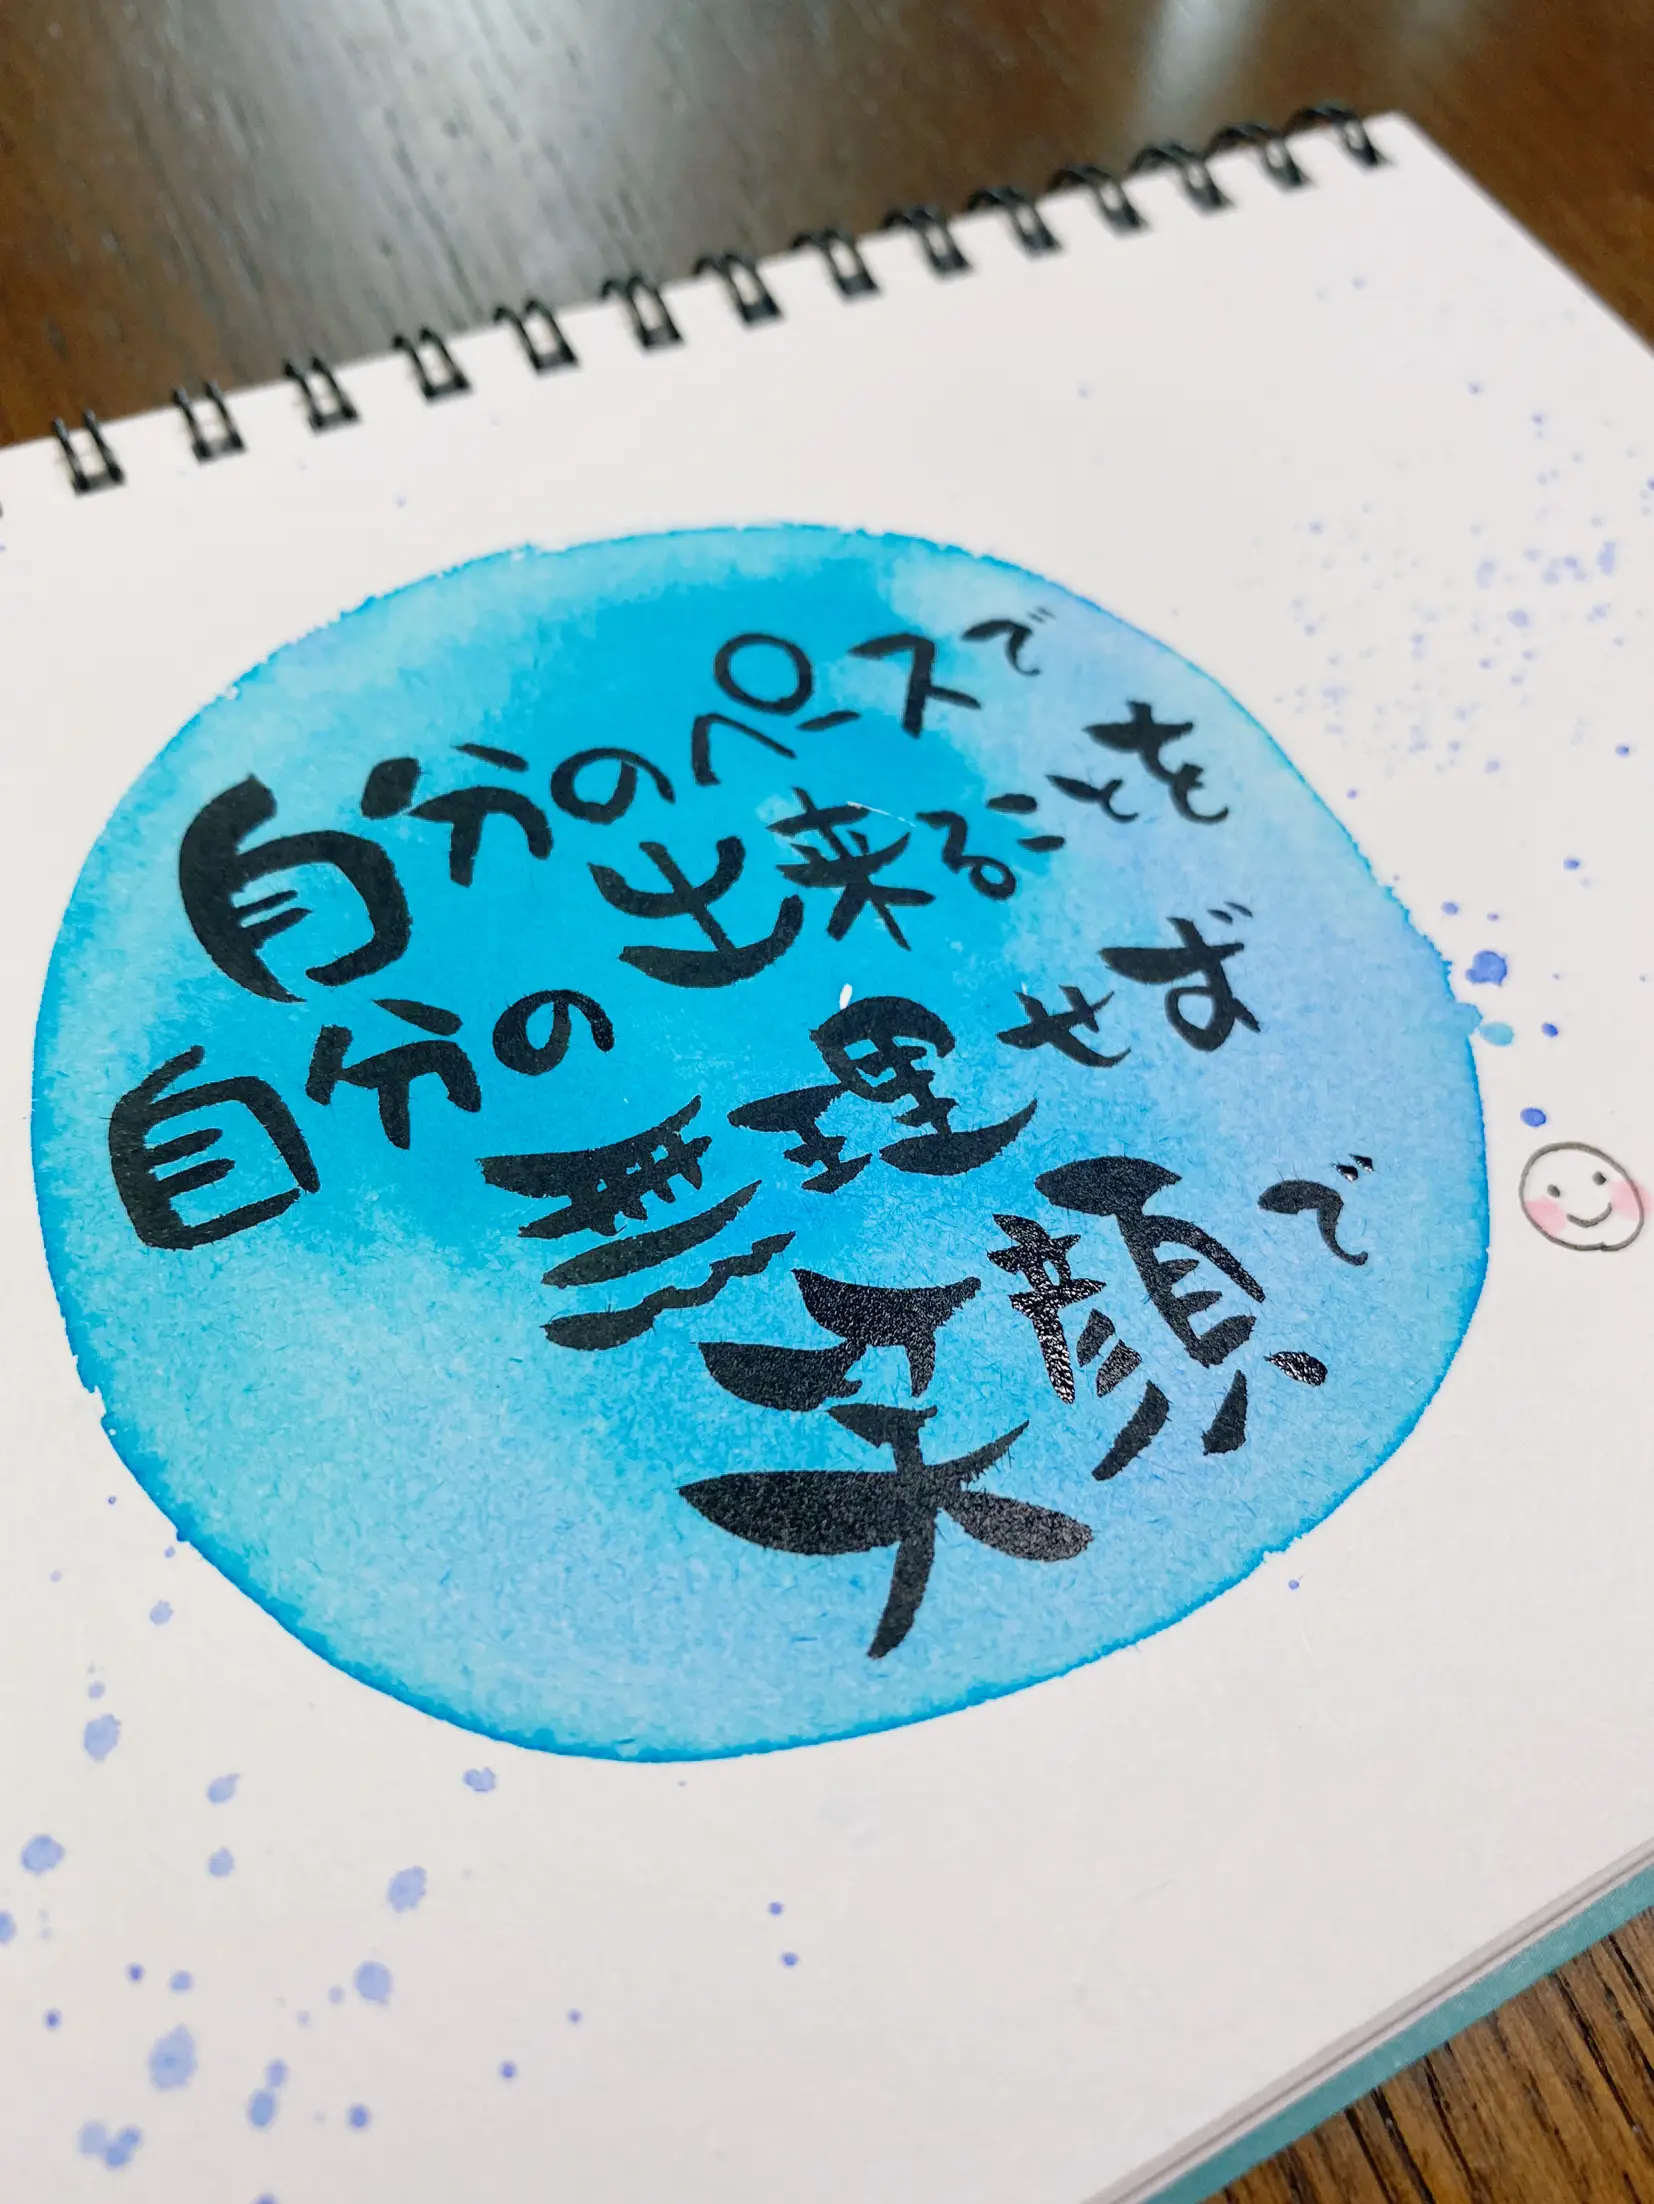 自分のペースで
自分の出来ることを
無理せず
笑顔で